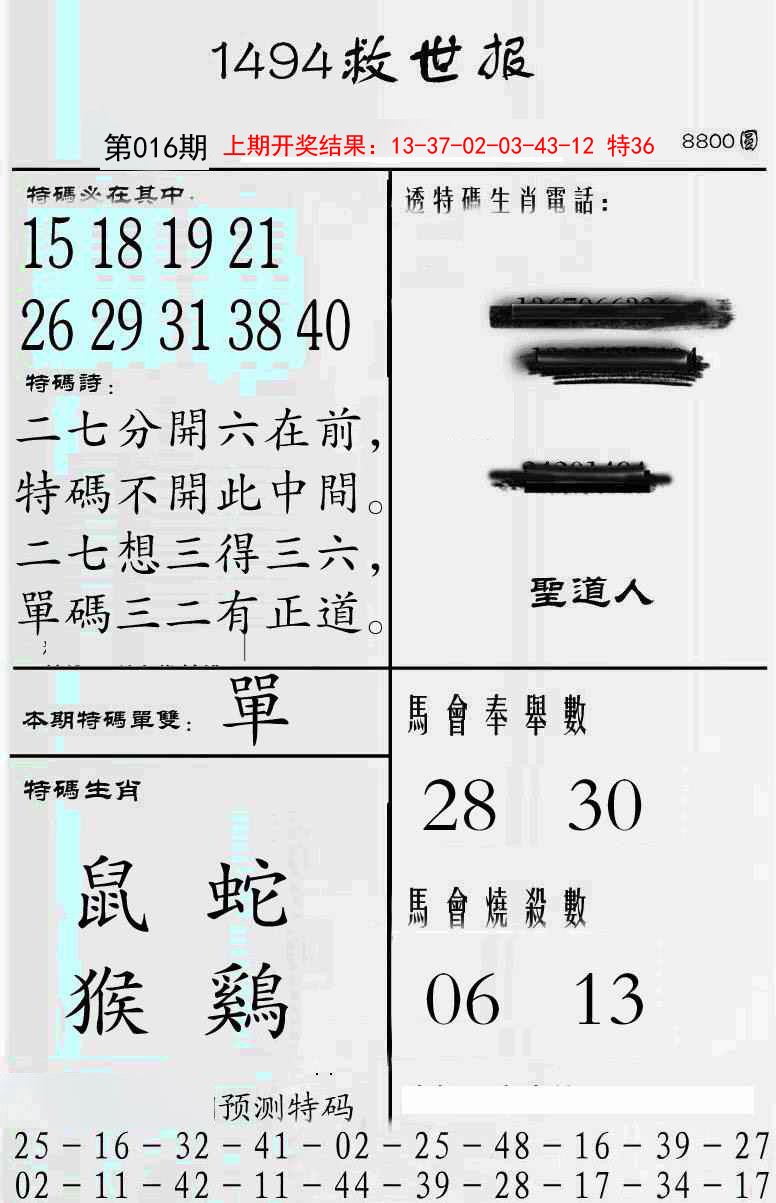 1494救世报
第016期 上期开奖结果：13-37-02-03-43-12 特36 8800圓
特碼必在其中．
15 18 19 21
26 29 31 38 40
特碼詩：
二七分開六在前，
特碼不開此中間。
二七想三得三六，
單碼三二有正道。
透特碼生肖電話：
聖道人
本期特碼單雙：單
特碼生肖
鼠 蛇
猴 鷄
馬會奉舉數
28 30
馬會燒殺數
06 13
预测特码
25－16－32－41－02－25－48－16－39－27
02－11－42－11－44－39－28－17－34－17